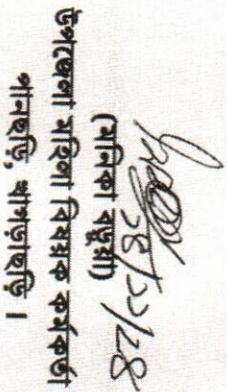 ২৪/১১/২৪
(মনিকা বড়ুয়া)
উপজেলা মহিলা বিষয়ক কর্মকর্তা
পানছড়ি, খাগড়াছড়ি ।